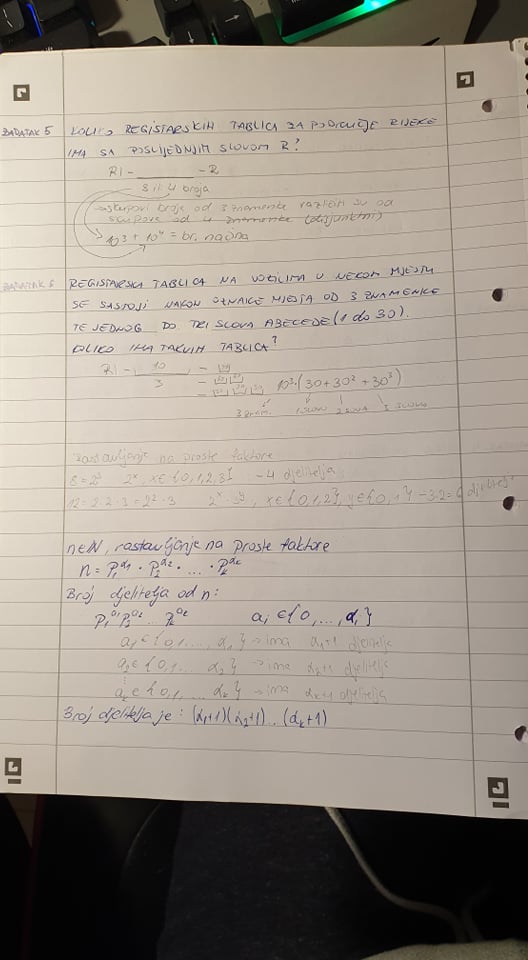 ZADATAK 5 KOLIKO REGISTARSKIH TABLICA ZA PODRUČJE RIJEKE
IMA SA POSLIJEDNJIM SLOVOM R?
RI - ______ - R
3 ili 4 broja
→ skupovi broje od 3 znamenke različiti su od
skupova od 4 znamenke (disjunktni)
10³ + 10⁴ = br. načina
ZADATAK 6 REGISTARSKA TABLICA NA VOZILIMA U NEKOM MJESTU
SE SASTOJI NAKON OZNAKE MJESTA OD 3 ZNAMENKE
TE JEDNOG DO TRI SLOVA ABECEDE (1 do 30).
KOLIKO IMA TAKVIH TABLICA?
RI - 10 - 30
3 - 30 30
- 30 30 30 10³·(30+30²+30³)
3 znam. 1 slovo 2 slova 3 slova
rastavljanje na proste faktore
8=2³ 2ˣ, x∈{0,1,2,3} - 4 djelitelja
12=2·2·3=2²·3 2ˣ·3ʸ, x∈{0,1,2}, y∈{0,1} - 3·2=6 djelitelja
n∈ℕ, rastavljanje na proste faktore
n = P₁^α₁ · P₂^α₂ · ... · Pₖ^αₖ
Broj djelitelja od n:
P₁^a₁ P₂^a₂ ... Pₖ^aₖ aᵢ ∈ {0,...,αᵢ}
a₁ ∈ {0,1,..., α₁} → ima α₁+1 djelitelja
a₂ ∈ {0,1... α₂} → ima α₂+1 djelitelja
⋮
aₖ ∈ {0,1,... αₖ} → ima αₖ+1 djelitelja
Broj djelitelja je: (α₁+1)(α₂+1)...(αₖ+1)